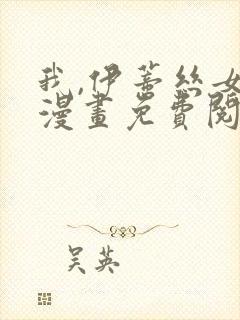 我,伊蒂絲女
漫畫免費閱
吴英